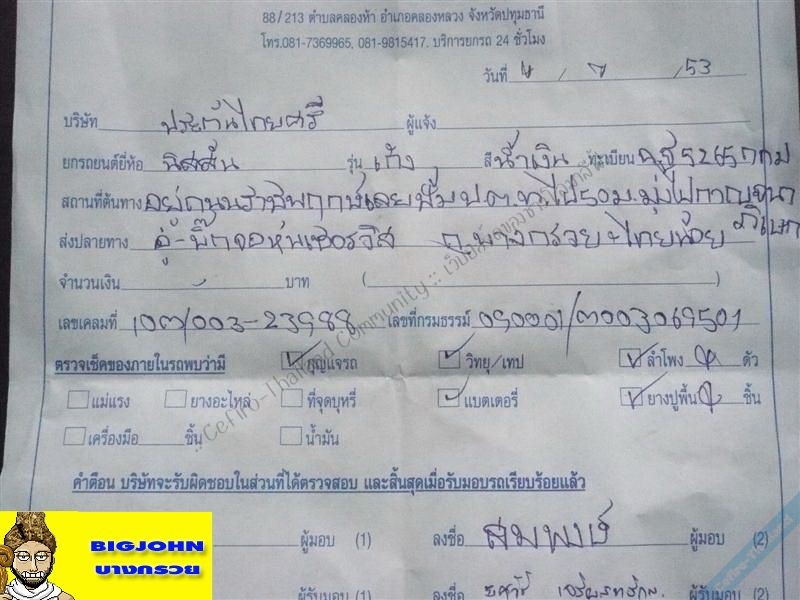 88/213 ตำบลคลองห้า อำเภอคลองหลวง จังหวัดปทุมธานี
โทร.081-7369965, 081-9815417. บริการยกรถ 24 ชั่วโมง
วันที่ 4 / 7 / 53
บริษัท ประกันไทยศรี ผู้แจ้ง
ยกรถยนต์ยี่ห้อ นิสสัน รุ่น เก๋ง สี น้ำเงิน ทะเบียน 5265 กทม
สถานที่ต้นทาง อยู่ถนนราชพฤกษ์เลยปั๊ม ป.ต.ท ไป 50 ม. มุ่งไปกาญจนา
ส่งปลายทาง อู่ บิ๊กจอห์นเซอร์วิส ถ.บางกรวย-ไทยน้อย ภิเษก
จำนวนเงิน - บาท ( )
เลขเคลมที่ 107/003-23988 เลขที่กรมธรรม์
ตรวจเช็คของภายในรถพบว่ามี กุญแจรถ วิทยุ/เทป ลำโพง 4 ตัว
แม่แรง ยางอะไหล่ ที่จุดบุหรี่ แบตเตอรี่ ยางปูพื้น ชิ้น
เครื่องมือ ชิ้น น้ำมัน
คำเตือน บริษัทจะรับผิดชอบในส่วนที่ได้ตรวจสอบ และสิ้นสุดเมื่อรับมอบรถเรียบร้อยแล้ว
ผู้มอบ (1) ลงชื่อ สมพงษ์ ผู้มอบ (2)
ผู้รับมอบ (1) ลงชื่อ ผู้รับมอบ (2)
BIGJOHN
บางกรวย
:: Cefiro-Thailand Community ::